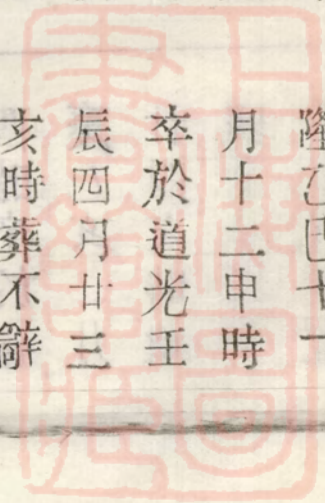 隆乙巳十一
月十二申時
卒於道光壬
辰四月廿三
亥時葬不辭